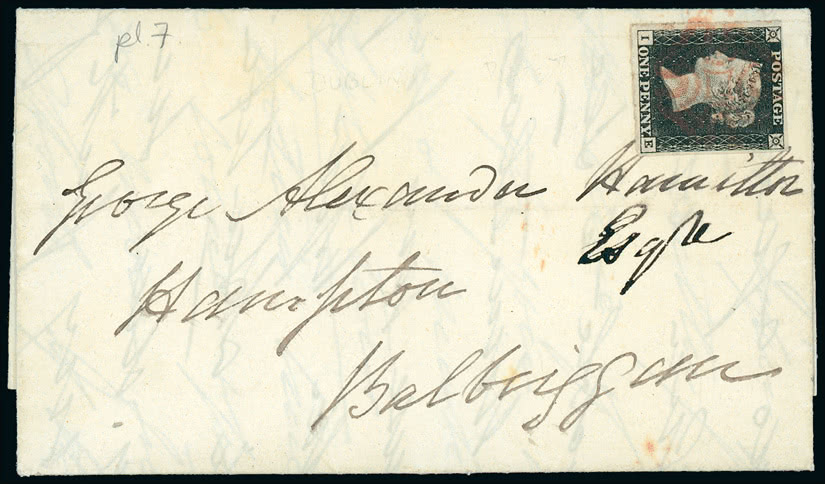 pl. 7
DUBLIN
POSTAGE
I ONE PENNY E
George Alexander Hamilton
Esqre
Hampton
Balbriggan